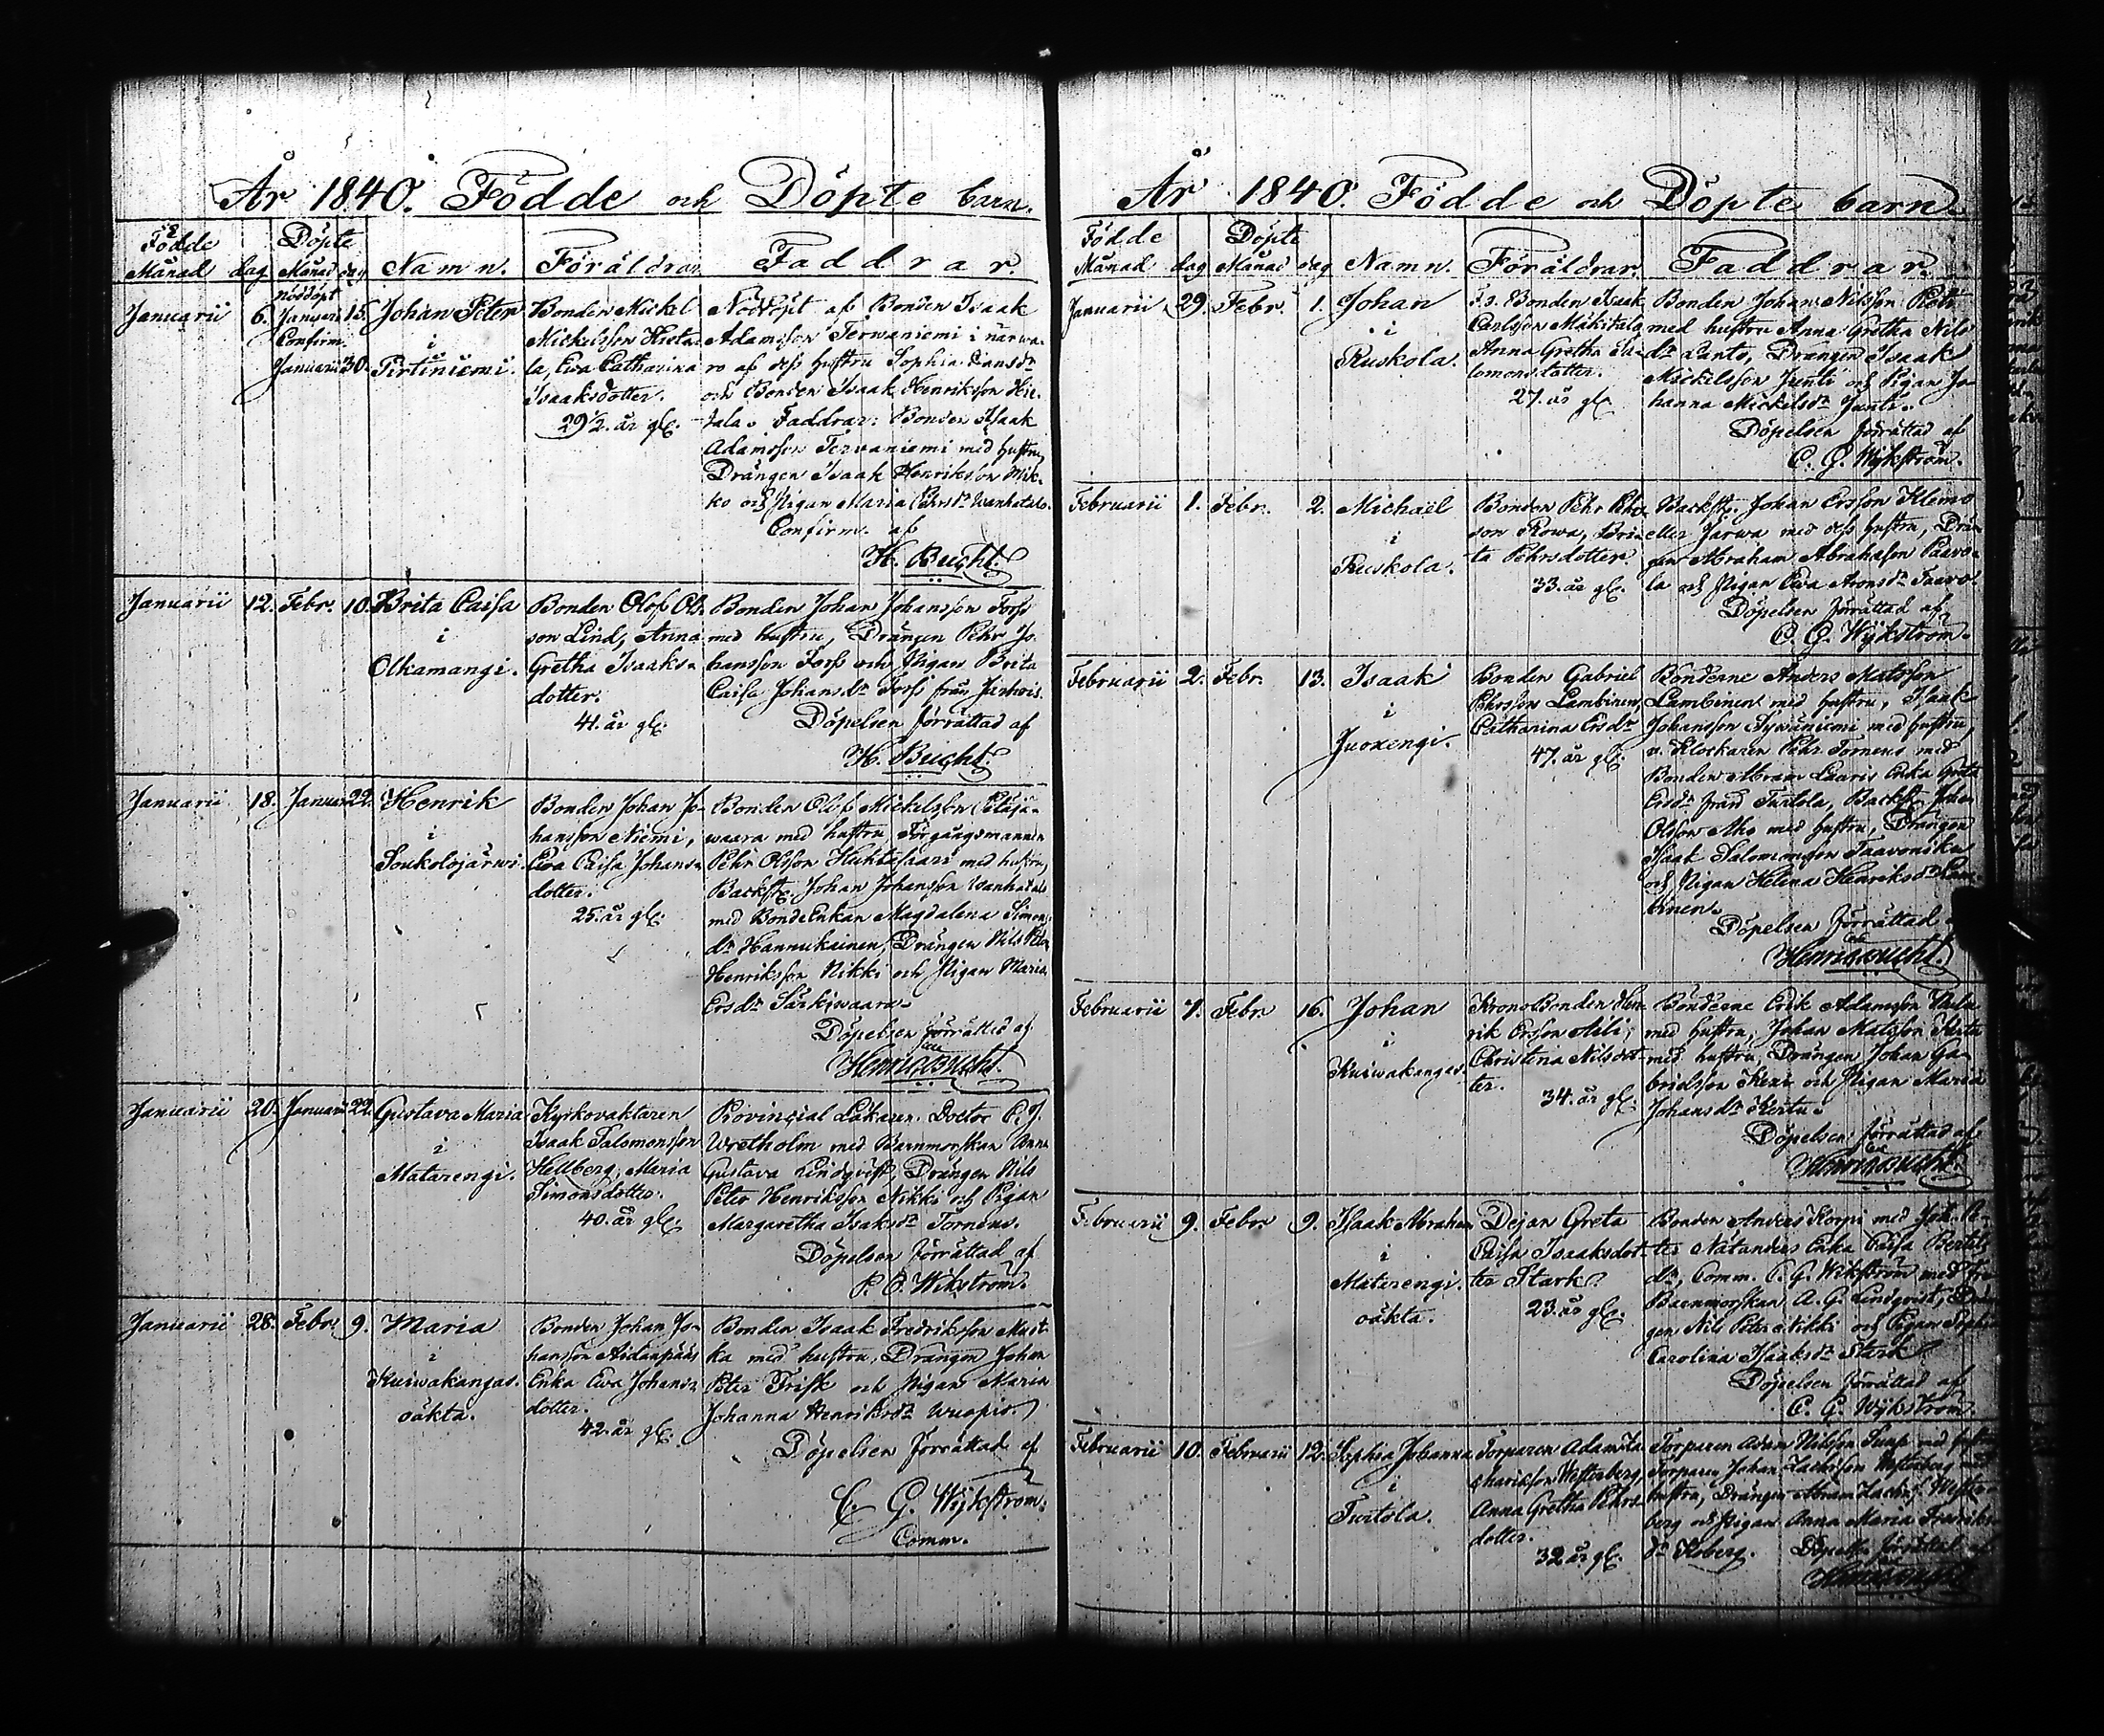 År 1840. Födde och Döpte barn.
Födde Månad dag Döpte Månad dag Namn. Föräldrar Faddrar.
Januarii 6. Nöddöpt Januari 15. Confirm. Januarii 30.
Johan Peter
i
Pirtiniemi.
Bonden Mickel
Mickelsson Hieta-
la, Ewa Catharina
Isaaksdotter.
29 1/2. år gl.
Nöddöpt af Bonden Isaak
Adamsson Terwaniemi i närwa-
ro af dess hustru Sophia
och Bonden Isaak Henriksson Hie-
tala. Faddrar: Bonden Isaak
Adamsson Terwaniemi med hustru,
Drängen Isaak Henriksson Mik-
ko och Pigan Maria Wanhatalo.
Confirm. af
H. Bucht.
Januarii 12. Febr. 10.
Brita Caisa
i
Olkamangi.
Bonden Olof Ols-
son Lind, Anna
Gretha Isaaks-
dotter.
41. år gl.
Bonden Johan Johansson Forss
med hustru, Drängen Pehr Jo-
hansson Forss och Pigan Brita
Caisa Johansdr Forss från
Döpelsen förrättad af
H. Bucht.
Januarii 18. Januarii 22.
Henrik
i
Soukolojärwi.
Bonden Johan Jo-
hansson Niemi,
Ewa Caisa Johans-
dotter.
25. år gl.
Bonden Olof Mickelsson Petäjä-
waara med hustru, Förgångsmannen
Pehr Olsson Huhtasaari med hustru,
Backst. Johan Johansson Wanhatalo
med BondeEnkan Magdalena Simons-
dr Hannukainen, Drängen Nils Peter
Henriksson Nikki och Pigan Maria
Ersdr Särkiwaara.
Döpelsen förrättad af
Henric Bucht.
Januarii 20. Januarii 22.
Gustava Maria
i
Matarengi.
Kyrkovaktaren
Isaak Salomonsson
Hellberg, Maria
Simonsdotter.
40. år gl.
Provincial Läkaren Doctor C. J.
Wretholm med Barnmorskan Anna
Gustava Lindqvist, Drängen Nils
Peter Henriksson Nikki och Pigan
Margaretha Isaksdr Torneus.
Döpelsen förrättad af
P. O. Wikström.
Januarii 28. Febr. 9.
Maria
i
Kuiwakangas.
oäkta.
Bonden Johan Jo-
hansson Aidanpääs
Enka Ewa Johans-
dotter.
42. år gl.
Bonden Isaak Fredriksson Must-
ka med hustru, Drängen Johan
Peter Frisk och Pigan Maria
Johanna Henriksdr Wuopio.
Döpelsen förrättad af
C. G. Wÿkström.
Comm.
År 1840. Födde och Döpte barn.
Födde Månad dag Döpte Månad dag Namn. Föräldrar. Faddrar.
Januarii 29. Febr. 1.
Johan
i
Ruskola.
F. d. Bonden Isaak
Carlsson Mäkitalo,
Anna Gretha Sa-
lomonsdotter.
27. år gl.
Bonden Johan Nilsson
med hustru Anna Gretha Nils-
dr Lanto, Drängen Isaak
Mickelsson Junti och Pigan Jo-
hanna Mickelsdr Junti.
Döpelsen förrättad af
C. G. Wÿkström.
Februarii 1. Febr. 2.
Michaël
i
Ruskola.
Bonden Pehr Pehrs-
son Rowa, Bri-
ta Pehrsdotter.
33. år gl.
Backst. Johan Ersson Klemo
eller Jarwa med dess hustru, Drän-
gen Abraham Abrahamsson Paavo-
la och Pigan Ewa Aronsdr
Döpelsen förrättad af
C. G. Wÿkström.
Februarii 2. Febr. 13.
Isaak
i
Juoxengi.
Bonden Gabriel
Pehrsson Lambinen,
Catharina Ersdr
47. år gl.
Bönderne Anders Matsson
Lambinen med hustru, Isaak
Johansson med hustru,
v. Klockaren Pehr Torneus med
Bonden Abram Lauris Enka Greta
Ersdr från Turtola, Backst. Johan
Olsson Aho med hustru, Drängen
Isaak Salomonsson Taavoniku
och Pigan Helena Henriksdr Lam-
binen.
Döpelsen förrättad
Henric Bucht.
Februarii 7. Febr. 16.
Johan
i
Kuiwakangas.
KronoBonden Hen-
rik Ersson Alili,
Christina Nilsdot-
ter.
34. år gl.
Bönderne Erik Adamsson
med hustru, Johan Matsson Kertu
med hustru, Drängen Johan Ga-
brielsson Keri och Pigan Maria
Johansdr Kertu.
Döpelsen förrättad af
Henric Bucht.
Februarii 9. Febr. 9.
Isaak Abraham
i
Matarengi.
oäkta.
Dejan Greta
Caisa Isaaksdot-
ter Stark.
23. år gl.
Bonden Anders Korpi med
Nätanders Enka Caisa Bertils-
dr, Comm. C. G. Wikström med
Barnmorskan A. G. Lindqvist, Drän-
gen Nils Peter Nikki och Pigan Sophia
Carolina Isaaksdr Stark
Döpelsen förrättad af
C. G. Wÿkström.
Februarii 10. Februarii 12.
Sophia Johanna
i
Turtola.
Torparen Adam Za-
chariasson Westerberg,
Anna Gretha Pehrs-
dotter.
32 år gl.
Torparen Adam Nilsson med hustru,
Torparen Johan Westerberg med
hustru, Drängen Abram Wester-
berg och Pigan Anna Maria Fredriks-
dr Koberg. Döpelsen förrättad af
Henric Bucht.